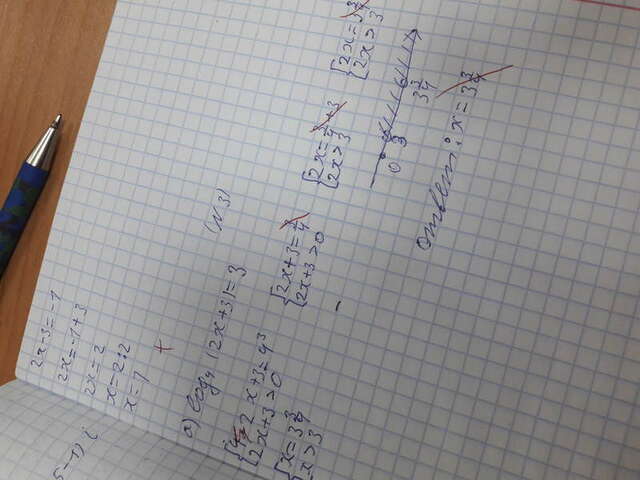 2x-3=-1
2x=-1+3
2x=2
x=2:2
x=1
+
а) log₄ (2x+3)=3 (N3)
2x+3=4³
2x+3>0
2x+3=
2x+3>0
2x=
2x>3
2x=
2x>3
x=3 3/4
x>3
-
0 3 3 3/4
ответ: x=3 3/4